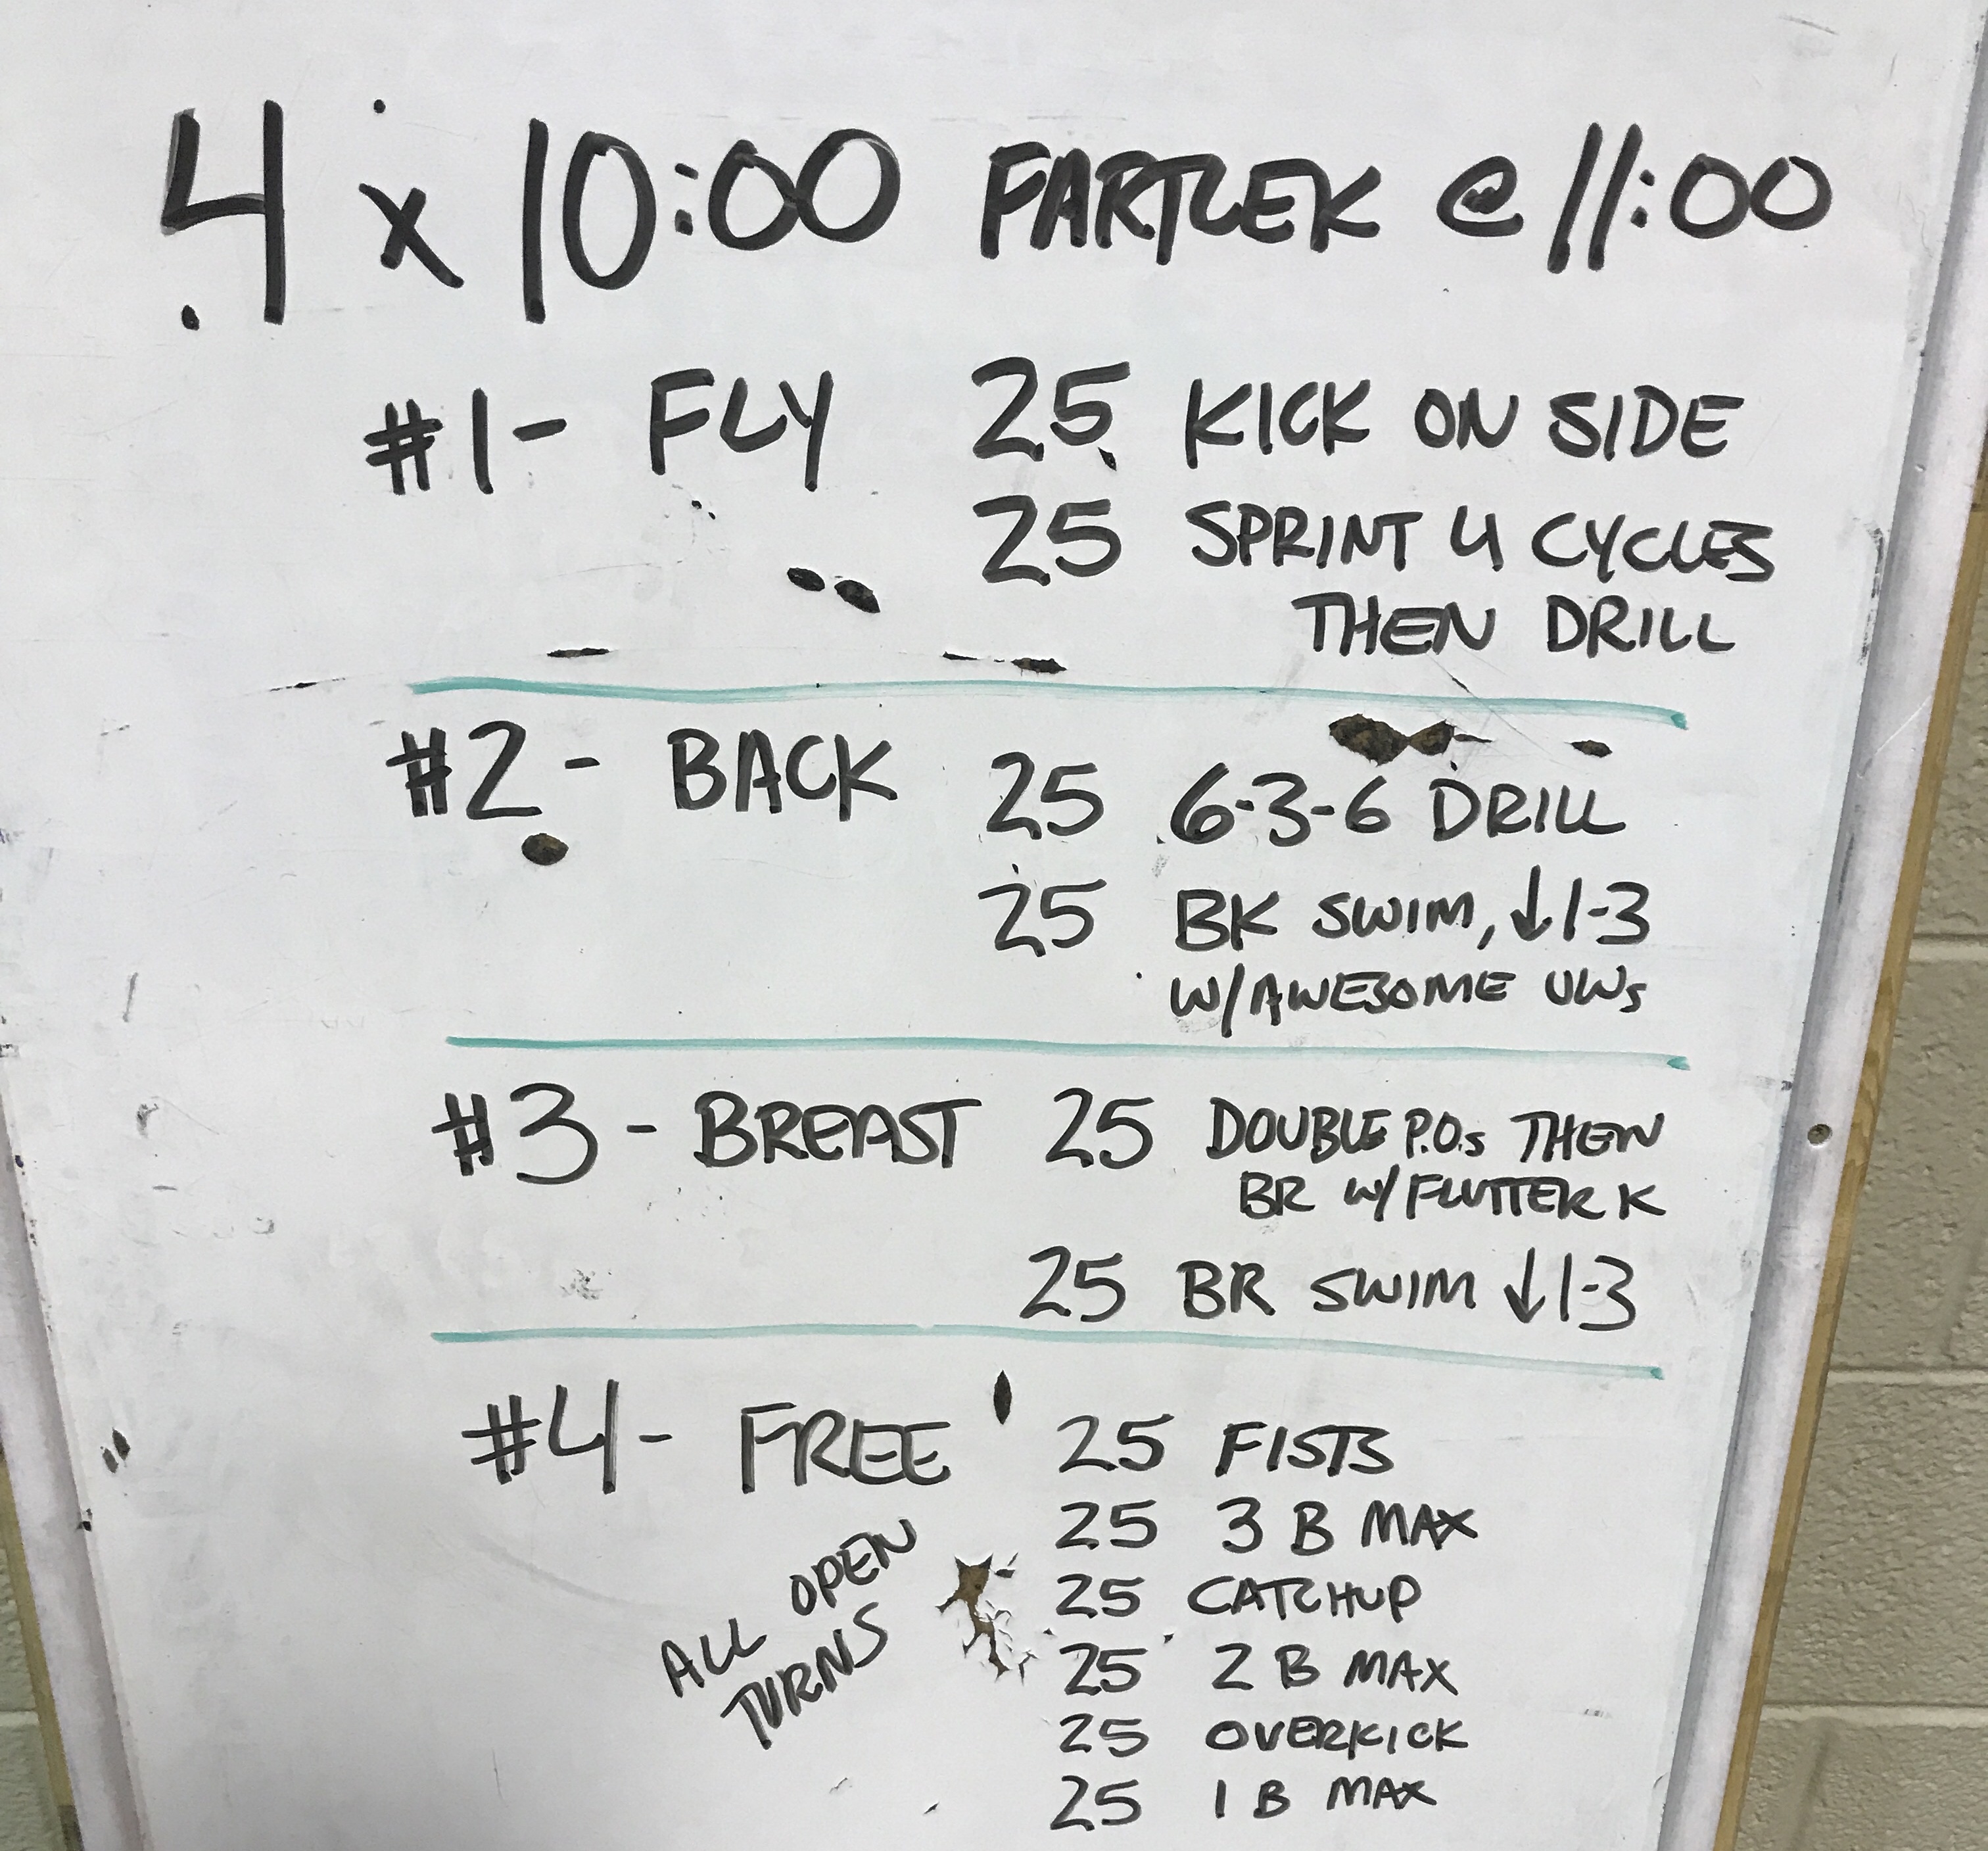 4 x 10:00 FARTLEK @ 11:00
#1- FLY 25 KICK ON SIDE
25 SPRINT 4 CYCLES
THEN DRILL
#2- BACK 25 6-3-6 DRILL
25 BK SWIM, ↓1-3
W/AWESOME UWs
#3- BREAST 25 DOUBLE P.O.s THEN
BR W/FLUTTER K
25 BR SWIM ↓1-3
#4- FREE 25 FISTS
25 3 B MAX
ALL OPEN
TURNS
25 CATCHUP
25 2 B MAX
25 OVERKICK
25 1 B MAX